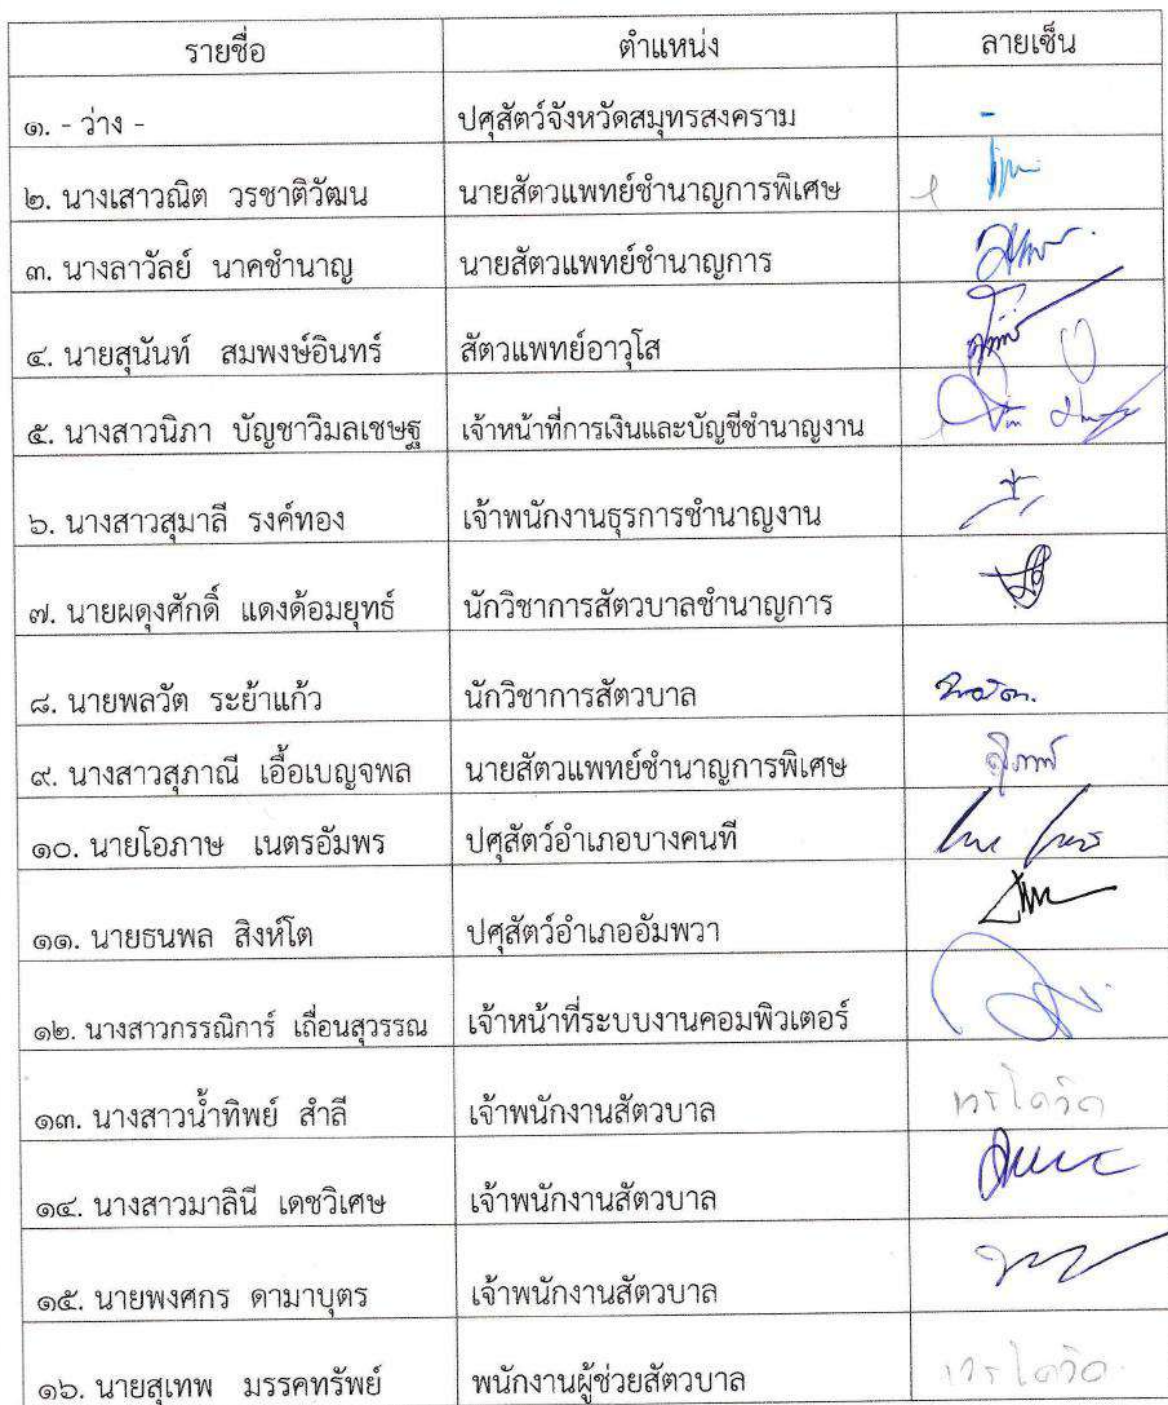 รายชื่อ ตำแหน่ง ลายเซ็น
๑. - ว่าง - ปศุสัตว์จังหวัดสมุทรสงคราม -
๒. นางเสาวณิต วรชาติวัฒน นายสัตวแพทย์ชำนาญการพิเศษ
๓. นางลาวัลย์ นาคชำนาญ นายสัตวแพทย์ชำนาญการ
๔. นายสุนันท์ สมพงษ์อินทร์ สัตวแพทย์อาวุโส
๕. นางสาวนิภา บัญชาวิมลเชษฐ เจ้าหน้าที่การเงินและบัญชีชำนาญงาน
๖. นางสาวสุมาลี รงค์ทอง เจ้าพนักงานธุรการชำนาญงาน
๗. นายผดุงศักดิ์ แดงด้อมยุทธ์ นักวิชาการสัตวบาลชำนาญการ
๘. นายพลวัต ระย้าแก้ว นักวิชาการสัตวบาล พลวัต.
๙. นางสาวสุภาณี เอื้อเบญจพล นายสัตวแพทย์ชำนาญการพิเศษ
๑๐. นายโอภาษ เนตรอัมพร ปศุสัตว์อำเภอบางคนที
๑๑. นายธนพล สิงห์โต ปศุสัตว์อำเภออัมพวา
๑๒. นางสาวกรรณิการ์ เถื่อนสุวรรณ เจ้าหน้าที่ระบบงานคอมพิวเตอร์
๑๓. นางสาวน้ำทิพย์ สำลี เจ้าพนักงานสัตวบาล
๑๔. นางสาวมาลินี เดชวิเศษ เจ้าพนักงานสัตวบาล
๑๕. นายพงศกร ดามาบุตร เจ้าพนักงานสัตวบาล
๑๖. นายสุเทพ มรรคทรัพย์ พนักงานผู้ช่วยสัตวบาล